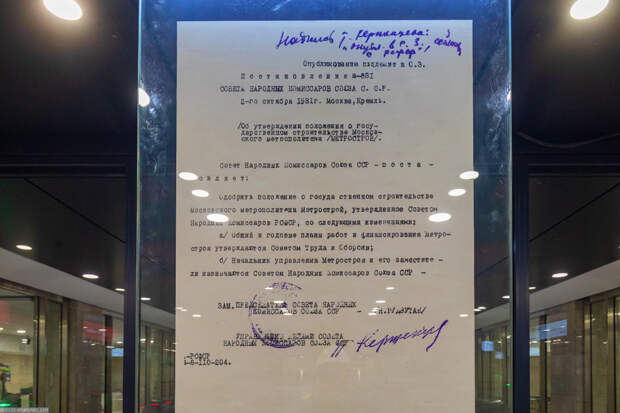 Опубликованию подлежит в С.З.
Постановление №-831
СОВЕТА НАРОДНЫХ КОМИССАРОВ СОЮЗА С. С. Р.
2-го октября 1931г. Москва, Кремль.
/Об утверждении положения о госу-
дарственном строительстве Москов-
ского метрополитена /МЕТРОСТРОЙ/.
Совет Народных Комиссаров Союза ССР - поста -
новляет:
Одобрить положение о государственном строительстве
Московского метрополитена Метрострой, утвержденное Советом
Народных Комиссаров РСФСР, со следующими изменениями:
а/ Общий и годовые планы работ и финансирования Метро-
строя утверждаются Советом Труда и Обороны;
б/ Начальник управления Метростроя и его заместите -
ли назначаются Советом Народных Комиссаров Союза ССР -
ЗАМ. ПРЕДСЕДАТЕЛЯ СОВЕТА НАРОДНЫХ
КОМИССАРОВ СОЮЗА ССР - /Я.РУДЗУТАК/
УПРАВЛЯЮЩИЙ ДЕЛАМИ СОВЕТА
НАРОДНЫХ КОМИССАРОВ СОЮЗА ССР-
-РСФСР
-8-110-204.